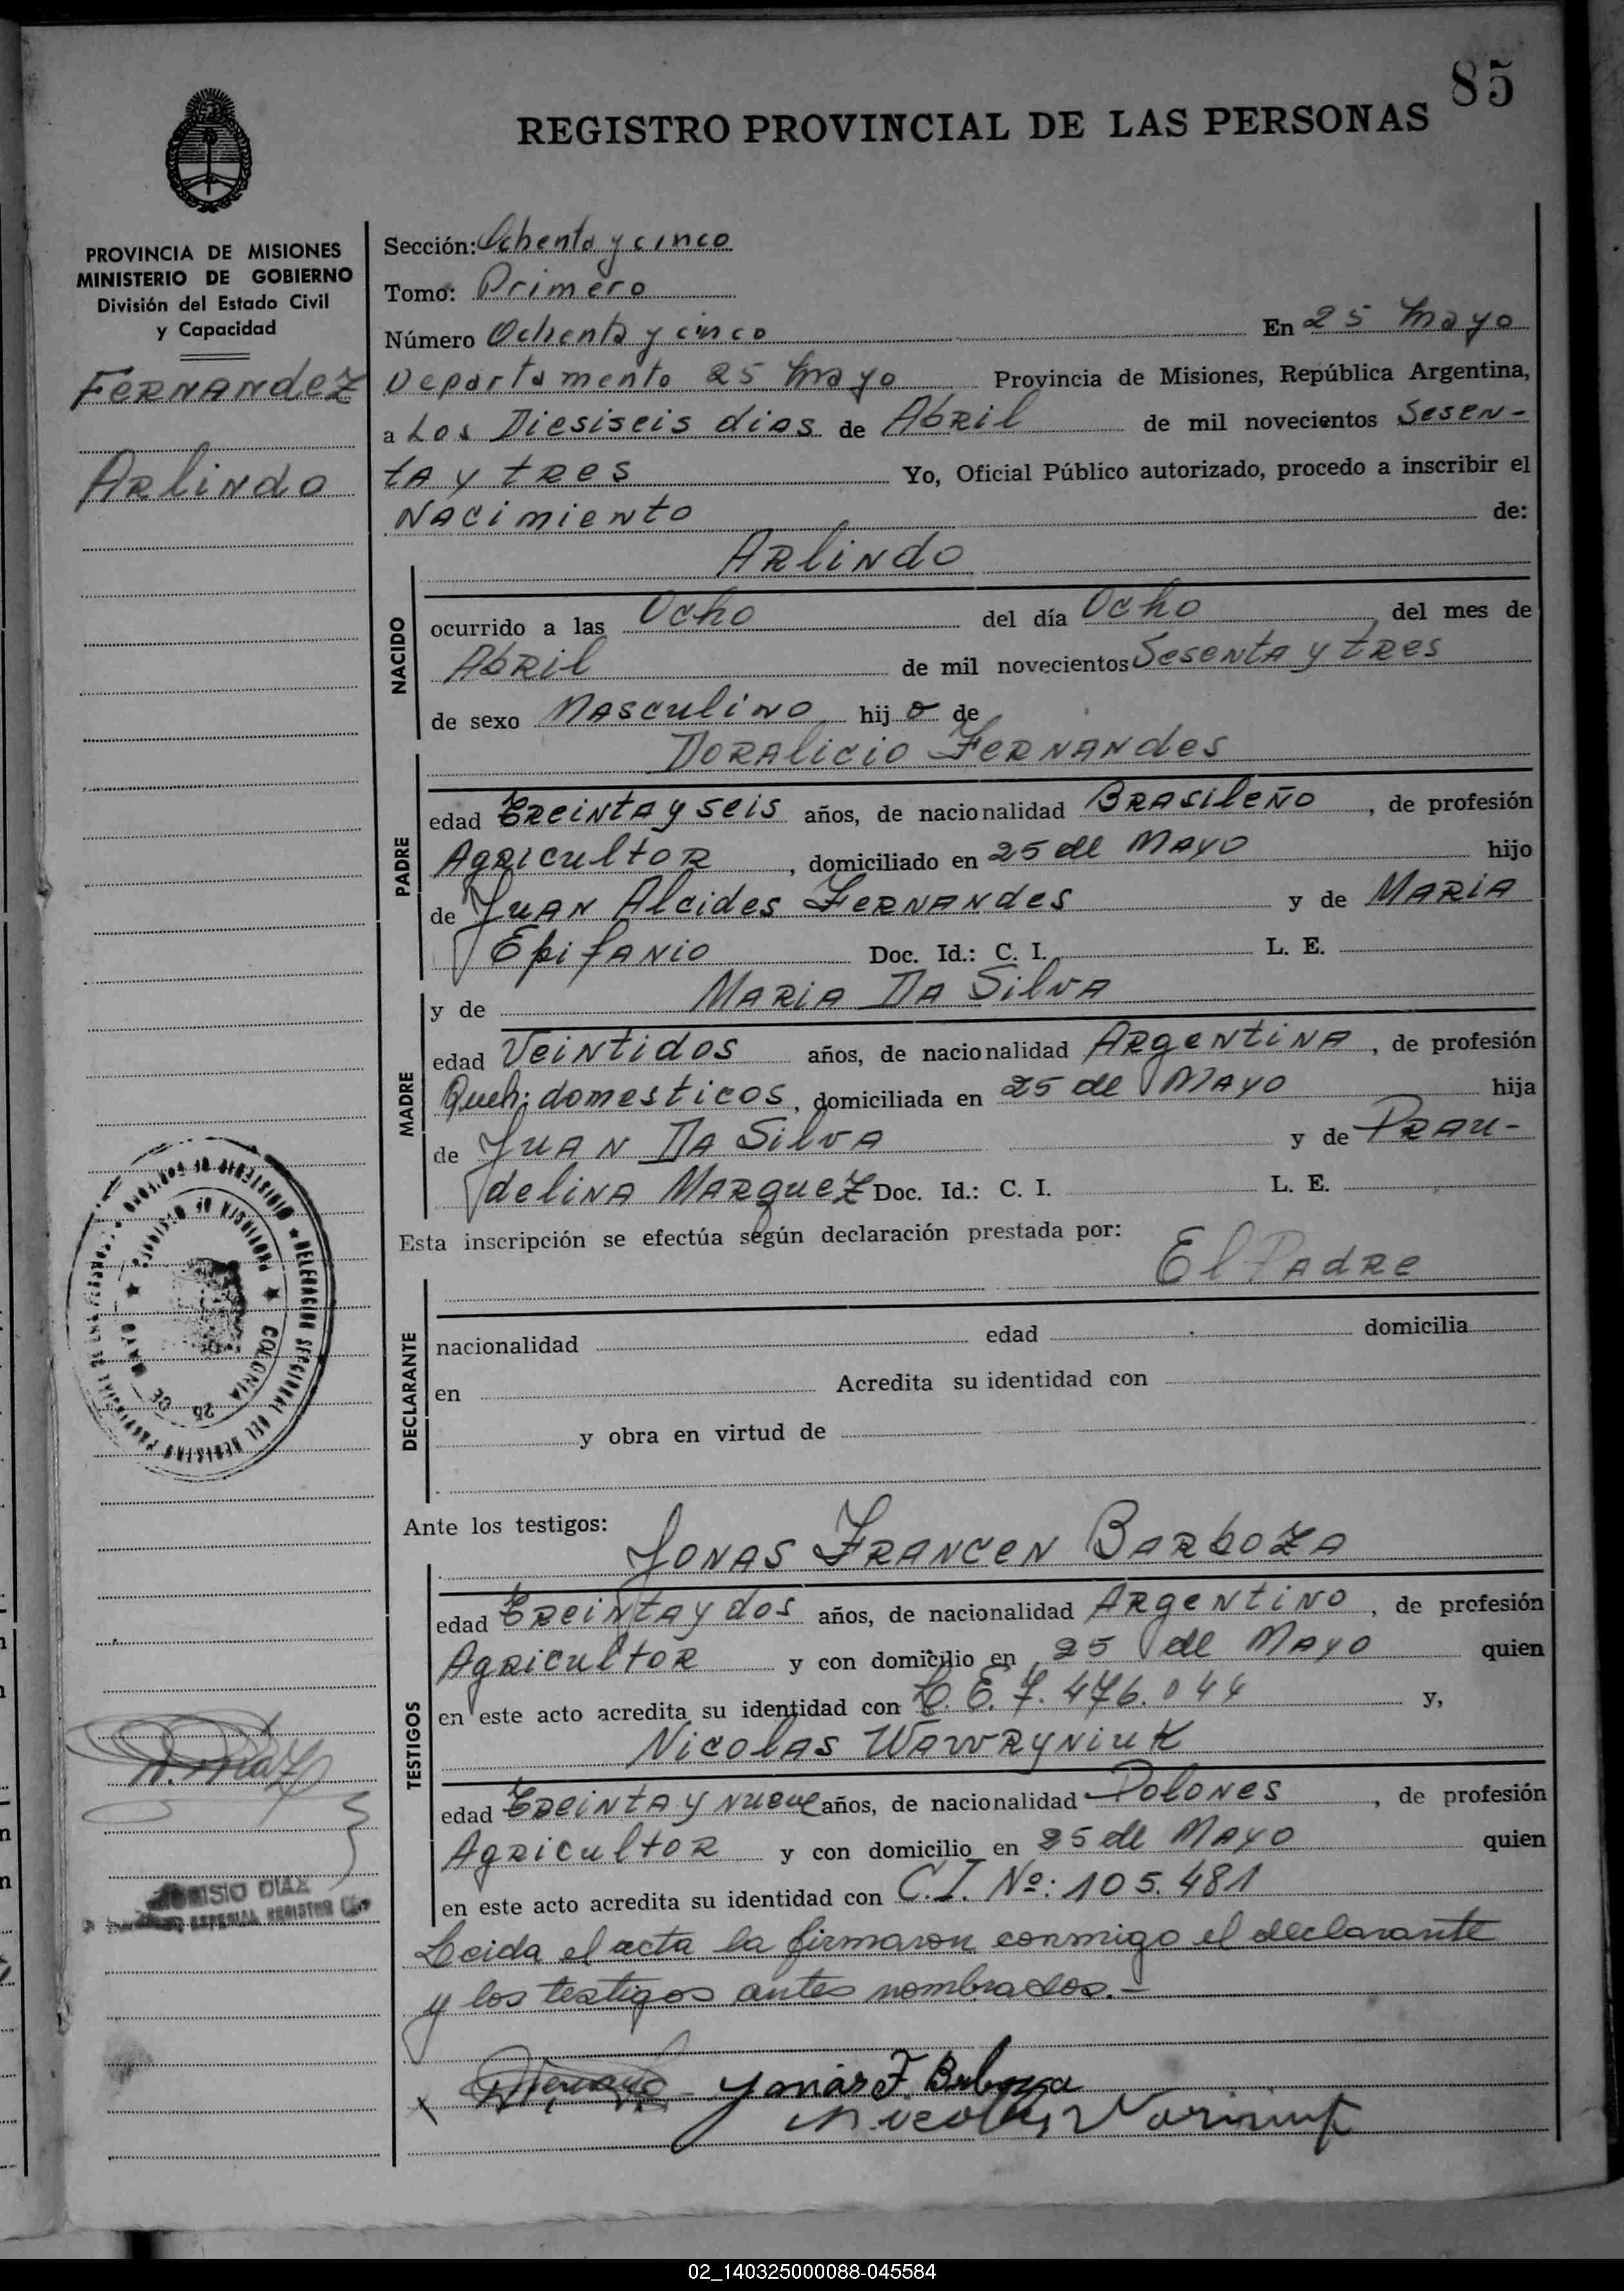 85
REGISTRO PROVINCIAL DE LAS PERSONAS
PROVINCIA DE MISIONES
MINISTERIO DE GOBIERNO
División del Estado Civil
y Capacidad
FERNANdeZ
ARlINdO
Sección: Ochenta y cinco
Tomo: Primero
Número Ochenta y cinco En 25 Mayo
Departamento 25 Mayo Provincia de Misiones, República Argentina,
a Los Diesiseis dias de AbRil de mil novecientos SeseN-
tA y tRes Yo, Oficial Público autorizado, procedo a inscribir el
NAcimieNto de:
ARliNdo
NACIDO
ocurrido a las Ocho del día Ocho del mes de
AbRil de mil novecientos SeseNtA y tRes
de sexo MAsculiNo hijo de
DoRAlicio FeRNANdes
PADRE
edad tReiNtA y seis años, de nacionalidad BRAsileÑo, de profesión
AgRicultoR, domiciliado en 25 de MAyo hijo
de JuAN Alcides FeRNANdes y de MARiA
EpifANio Doc. Id.: C. I. L. E.
y de MARiA DA SilvA
MADRE
edad VeiNtidos años, de nacionalidad ARgeNtiNA, de profesión
Queh. domesticos, domiciliada en 25 de MAyo hija
de JuAN DA SilvA y de PRAu-
deliNA MARqueZ Doc. Id.: C. I. L. E.
Esta inscripción se efectúa según declaración prestada por:
El PAdRe
DECLARANTE
nacionalidad edad domicilia
en Acredita su identidad con
y obra en virtud de
Ante los testigos:
JoNAS FRANceN BARboZA
TESTIGOS
edad tReiNtA y dos años, de nacionalidad ARgeNtiNo, de profesión
AgRicultoR y con domicilio en 25 de MAyo quien
en este acto acredita su identidad con L. E. 7.476.044 y,
NicolAs WAwRyNiuK
edad tReiNtA y Nueve años, de nacionalidad PoloNes, de profesión
AgRicultoR y con domicilio en 25 de MAyo quien
en este acto acredita su identidad con C.I. Nº: 105.481
Leida el acta la firmaron conmigo el declarante
y los testigos antes nombrados.-
Jonas F. Barboza
Nicolas
COLONIA 25 DE MAYO
DIAZ
02_140325000088-045584